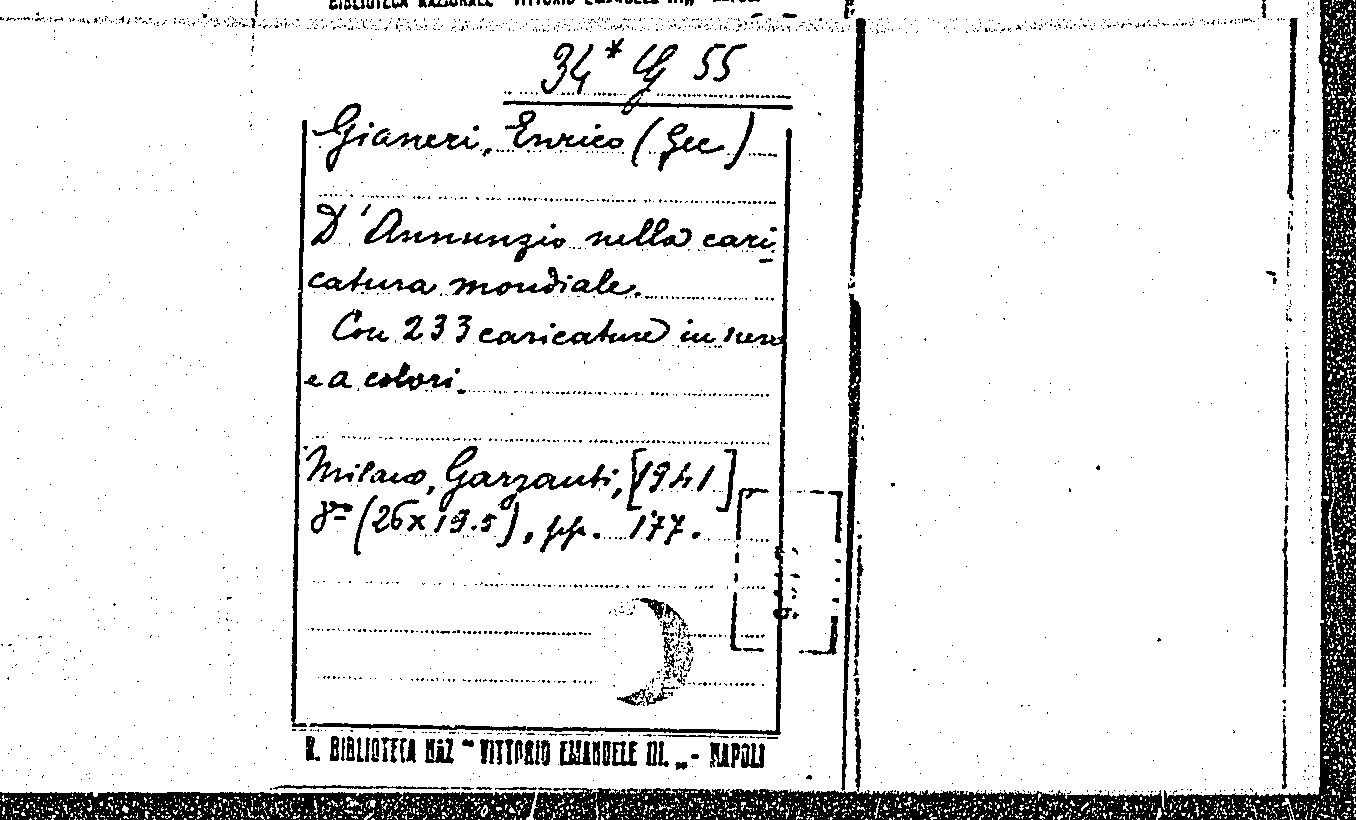 BIBLIOTECA NAZIONALE "VITTORIO EMANUELE III„ NAPOLI
34* G 55
Gianeri, Enrico (Gec)
D'Annunzio nella cari
catura mondiale.
Con 233 caricature in nero
e a colori.
Milano, Garzanti, [1941]
8º (26x19.5), pp. 177.
R. BIBLIOTECA NAZ " VITTORIO EMANUELE III. „ - NAPOLI